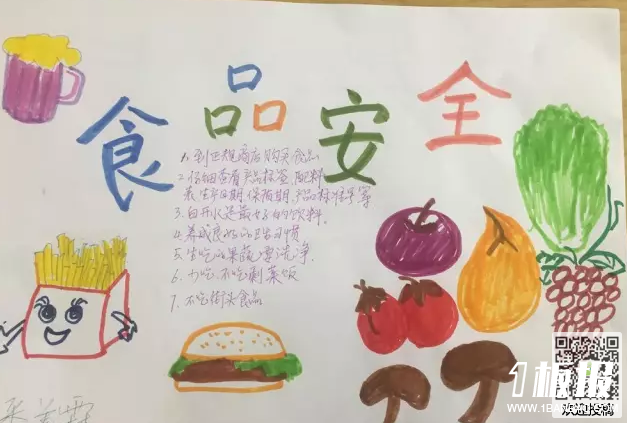 食品安全
1、到正规商店购买食品
2、仔细查看产品标签、配料
表、生产日期、保质期、产品标准号等
3、白开水是最好的饮料、
4、养成良好的卫生习惯
5、生吃的果蔬要洗净、
6、少吃、不吃剩菜饭
7、不吃街头食品
1板报
WWW.1BANBAO.COM
欢迎投稿